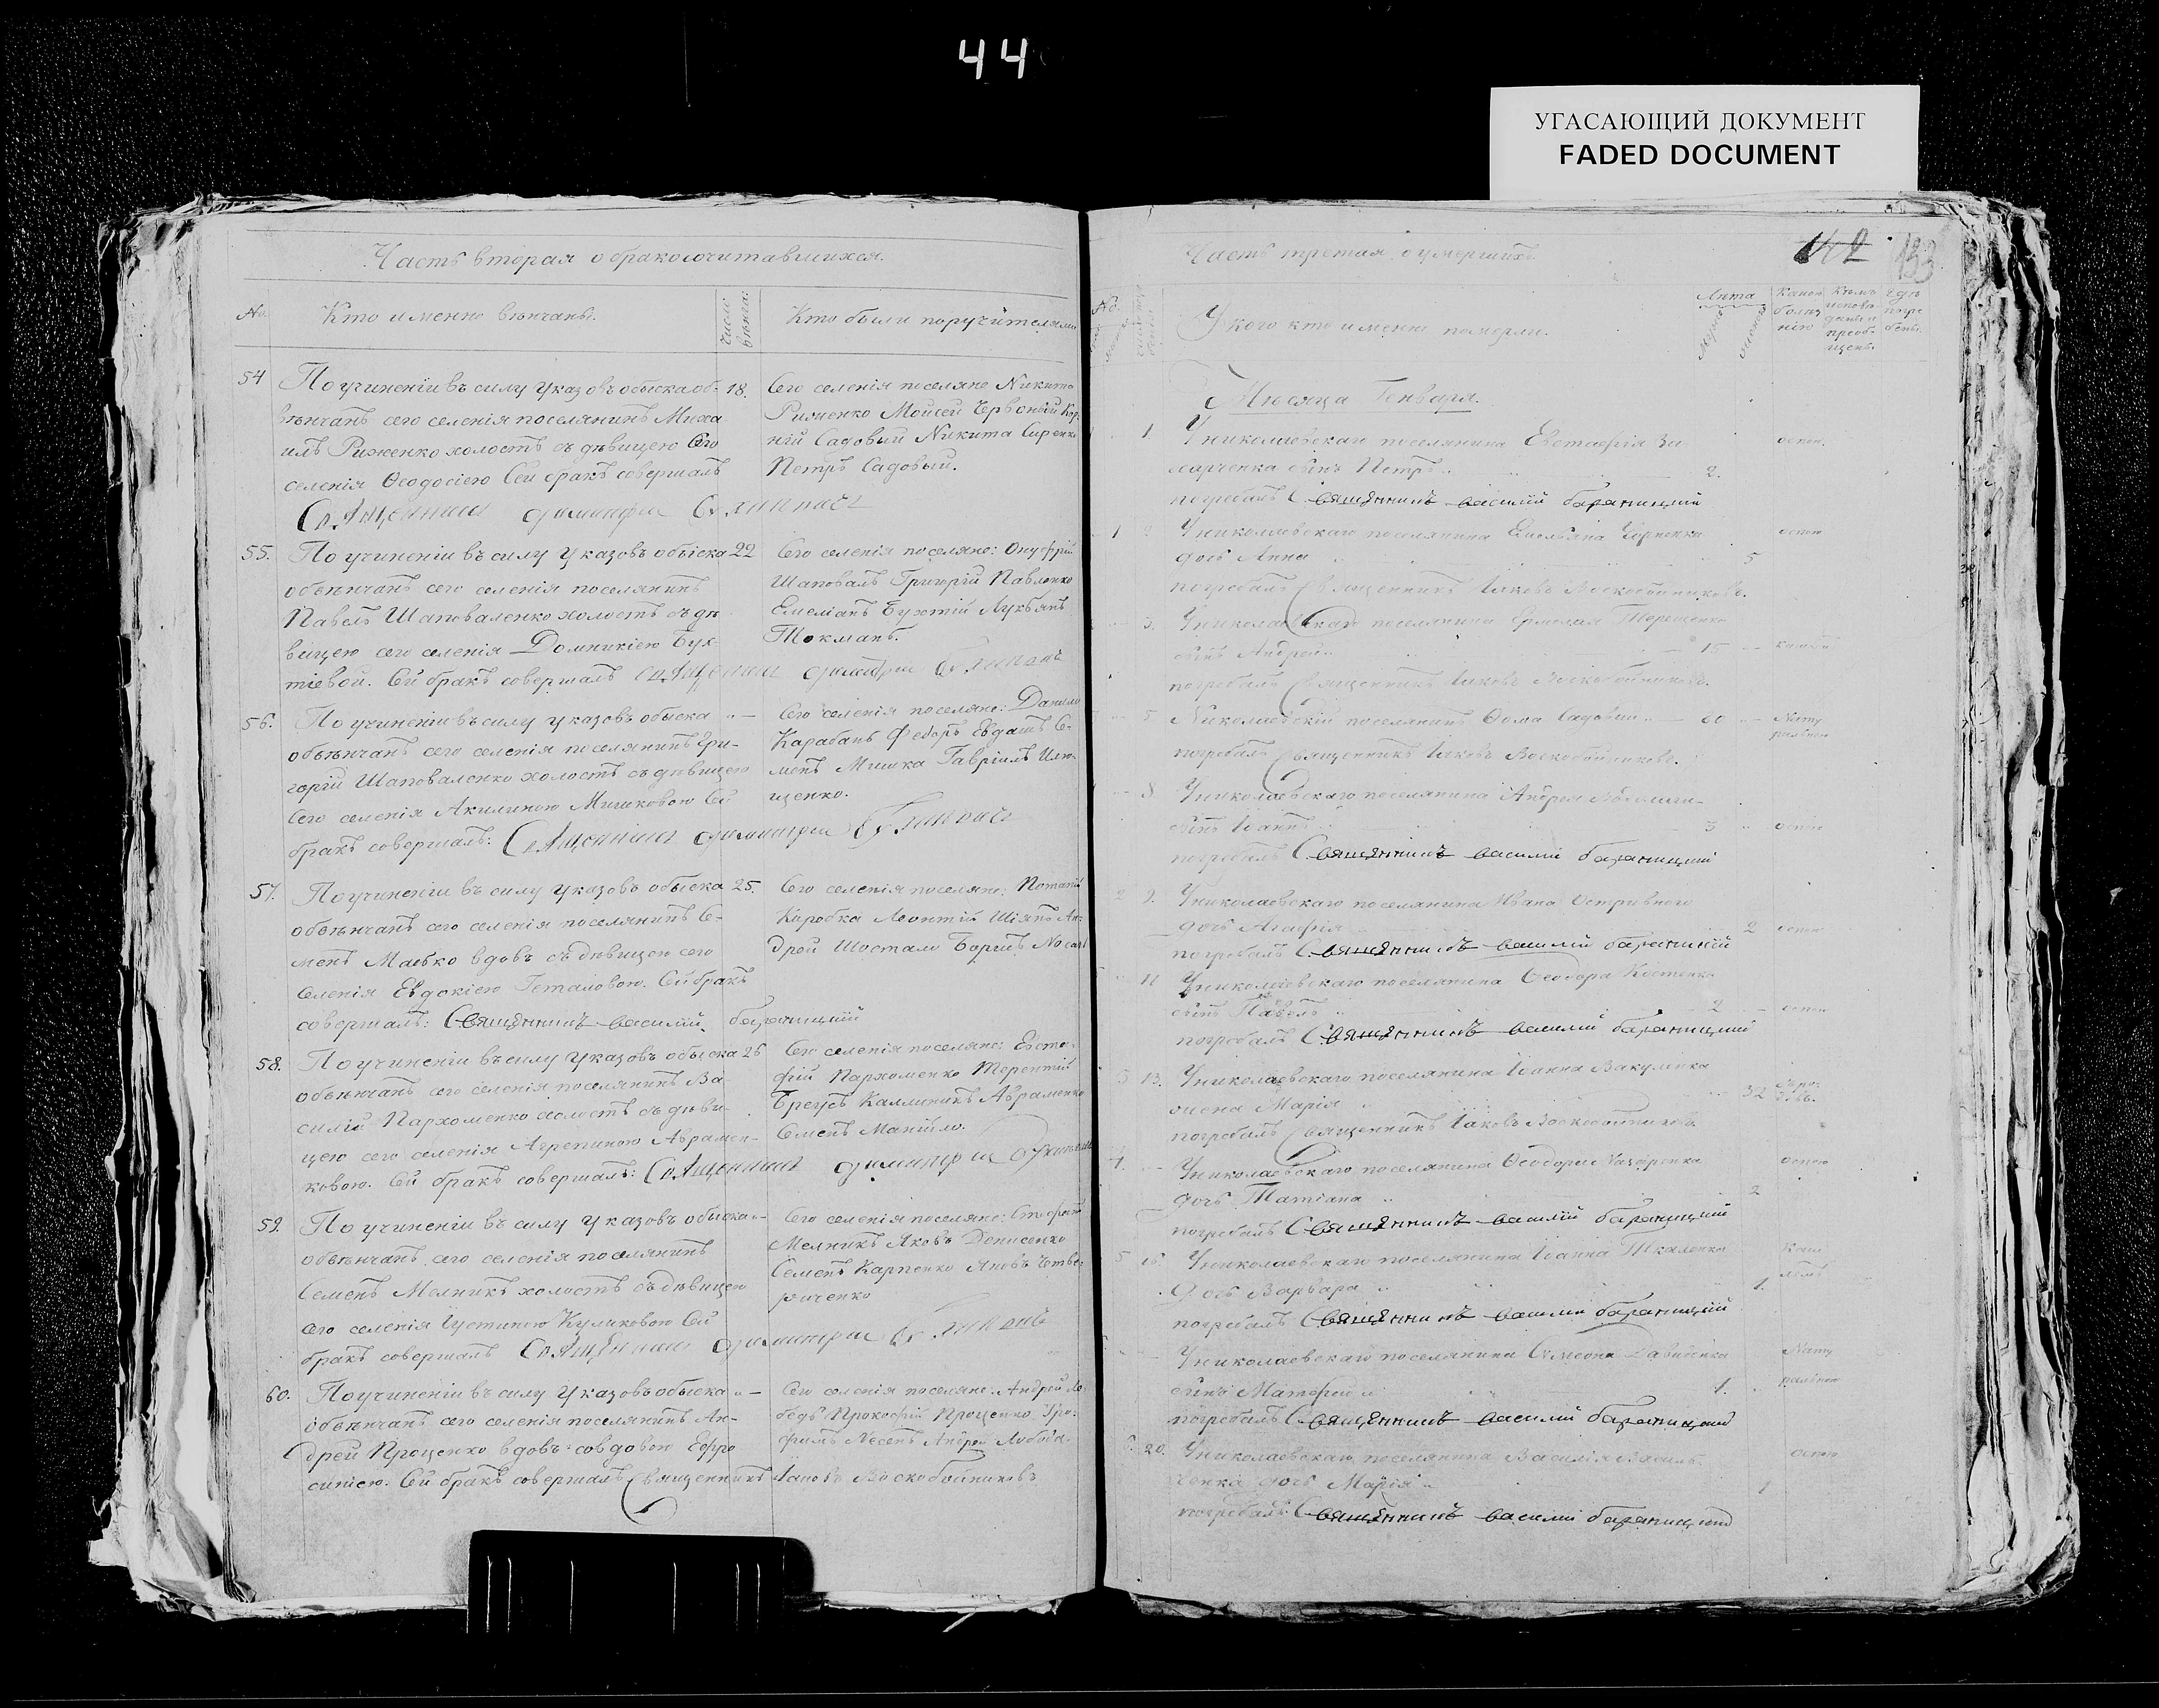 44
УГАСАЮЩИЙ ДОКУМЕНТ
FADED DOCUMENT
Часть вторая о бракосочитавшихся.
№
Кто именно вѣнчаны.
Число вѣнча:
Кто были поручителями
54
По учиненіи въ силу указовъ обыска об-
18.
вѣнчанъ сего селенія поселянинъ Миха
илъ Риженко холостъ съ дѣвицею сего
селенія Ѳеодосіею Сей бракъ совершалъ
Священникъ
Сего селенія поселяне Никита
Риженко Мойсей Червоный Кор-
ній Садовый Никита Сиренко
Петръ Садовый.
55.
По учиненіи въ силу указовъ обыска
22
обвѣнчанъ сего селенія поселянинъ
Павелъ Шаповаленко холостъ съ дѣ
вицею сего селенія Домникіею Бух
тіевой. Сей бракъ совершалъ
Сего селенія поселяне: Онуфрій
Шаповалъ Григорій Павленко
Емеліанъ Бухтій Лукіянъ
Токманъ.
56.
По учиненіи въ силу указовъ обыска
обвѣнчанъ сего селенія поселянинъ Гри-
горій Шаповаленко холостъ съ дѣвицею
сего селенія Акилиною Мишковою Сей
бракъ совершалъ: Священникъ
Сего селенія поселяне: Данило
Карабанъ Федоръ Евдашъ Се-
менъ Мишка Гавріилъ Илю-
щенко.
57.
По учиненіи въ силу указовъ обыска
25.
обвѣнчанъ сего селенія поселянинъ Се-
менъ Маебко вдовъ съ дѣвицею сего
селенія Евдокіею Геталовою. Сей бракъ
совершалъ: Священникъ василій бараницкій
Сего селенія поселяне: Потапій
Коробка Леонтій Шіянъ Ан-
дрей Шостало Борисъ
58.
По учиненіи въ силу указовъ обыска
26
обвѣнчанъ сего селенія поселянинъ Ва-
силій Пархоменко холостъ съ дѣви-
цею сего селенія Агрепиною Аврамен-
ковою. Сей бракъ совершалъ: Священникъ
Сего селенія поселяне: Евста-
фій Пархоменко Терентій
Брегусъ Калиникъ Авраменко
Семенъ Манійло.
59.
По учиненіи въ силу указовъ обыска
обвѣнчанъ сего селенія поселянинъ
Семенъ Мелникъ холостъ съ дѣвицею
сего селенія Іустиною Куликовою Сей
бракъ совершалъ Священникъ
Сего селенія поселяне:
Мелникъ Яковъ Денисенко
Семенъ Карпенко Яковъ Четве-
риченко
60.
По учиненіи въ силу указовъ обыска
обвѣнчанъ сего селенія поселянинъ Ан-
дрей Проценко вдовъ со вдовою Ефро
синіею. Сей бракъ совершалъ Священникъ Іаковъ Воскобойниковъ
Сего селенія поселяне: Андрей Ле-
бедь Прокофій Проценко Тро-
фимъ Несенъ Андрей Лобода.
Часть третая о умершихъ
142
133
№
У кого кто именно померли.
Лѣта
Какою болѣз нію
Кѣмъ исповѣ даны и преоб- щены.
Гдѣ погре бены.
Мѣсяца Генваря.
1.
У николаевскаго поселянина Евстафія За-
харченка сынъ Петръ
2.
оспою.
погребалъ Священникъ василій бараницкій
1
У николаевскаго поселянина Емельяна Чорненка
дочь Анна
5
оспою
погребалъ Священникъ Іаковъ Воскобойниковъ.
3.
У николаевскаго поселянина Ермолая Терещенка
сынъ Андрей
15
погребалъ Священникъ Іаковъ Воскобойниковъ.
5
Николаевскій поселянинъ Ѳома Садовый
60
Нату ральною
погребалъ Священникъ Іаковъ Воскобойниковъ.
8
У николаевскаго поселянина Андрея
сынъ Іоаннъ
3
оспою
погребалъ Священникъ василій бараницкій
2
9.
У николаевскаго поселянина Ивана Остривного
дочь Агафія
2
оспою
погребалъ Священникъ василій бараницкій
11
У николаевскаго поселянина Ѳеодора Костенка
сынъ Павелъ
2
оспою
погребалъ Священникъ василій бараницкій
3
13.
У николаевскаго поселянина Іоанна Вакуленка
жена Марія
32
погребалъ Священникъ Іаковъ Воскобойниковъ
4.
У николаевскаго поселянина Ѳеодора Назаренка
дочь Татіана
2
оспою
погребалъ Священникъ василій бараницкій
5
16.
У николаевскаго поселянина Іоанна Ткаленка
дочь Варвара
1.
Каш лемъ
погребалъ Священникъ василій бараницкій
У николаевскаго поселянина Симеона Давиденка
сынъ Матфей
1.
Нату ральною
погребалъ Священникъ василій бараницкій
20.
У николаевскаго поселянина Василія Василь-
ченка дочь Марія
1
оспою
погребалъ Священникъ василій бараницкій